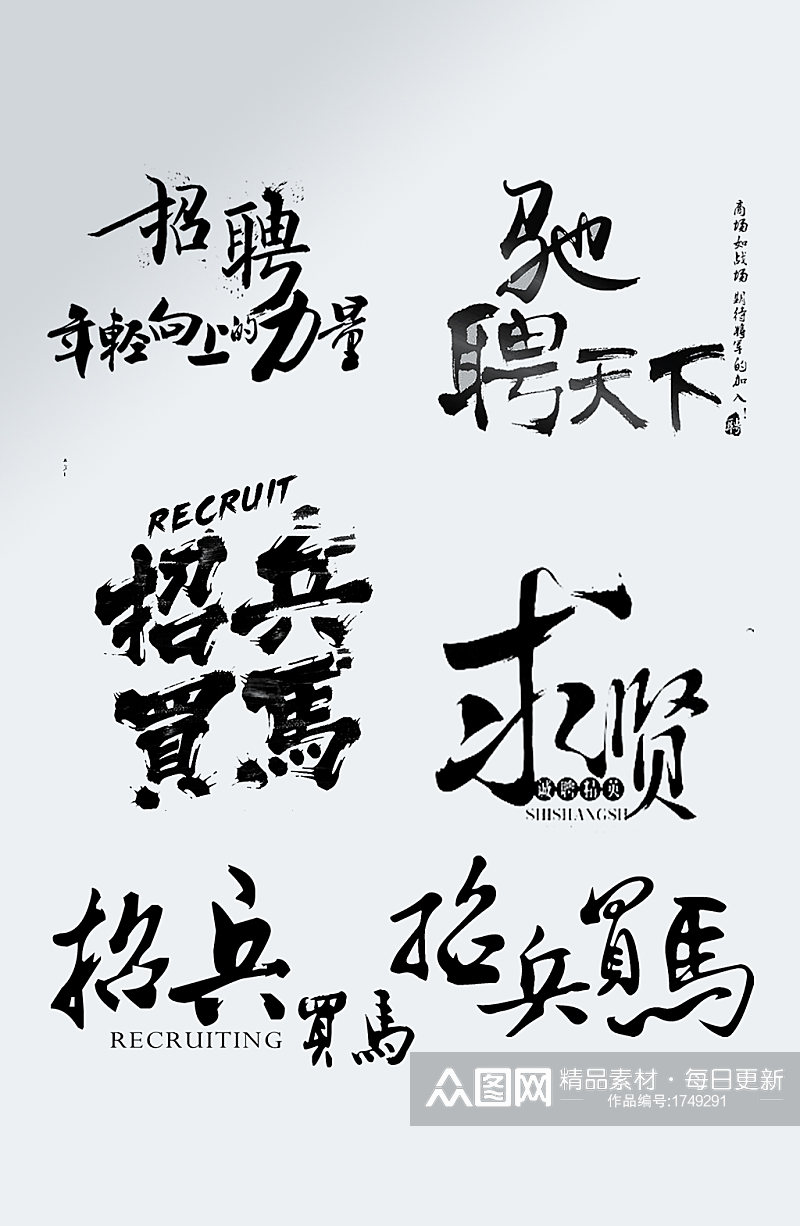 招聘
年輕向上的力量
驰
聘天下
商场如战场 期待将军的加入!
聘
RECRUIT
招兵
買馬
求贤
诚聘精英
SHISHANGSH
招兵
買馬
RECRUITING
招兵買馬
众图网
精品素材·每日更新
作品编号:1749291